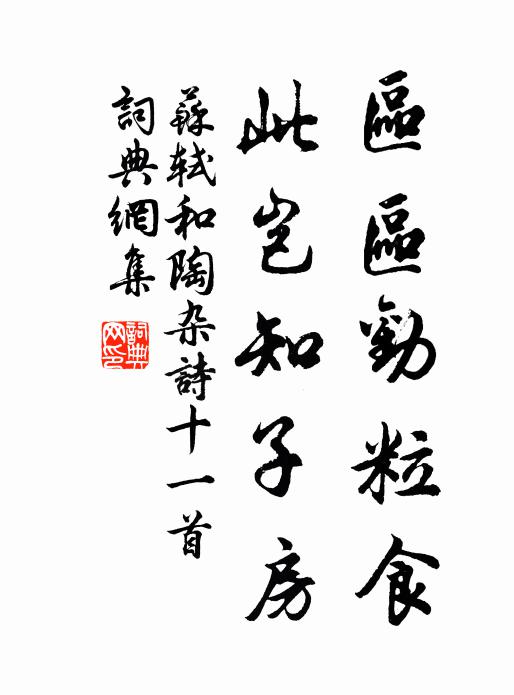 區區勸粒食
此豈知子房
蘇軾和陶杂詩十一首
詞典網集
詞典網印